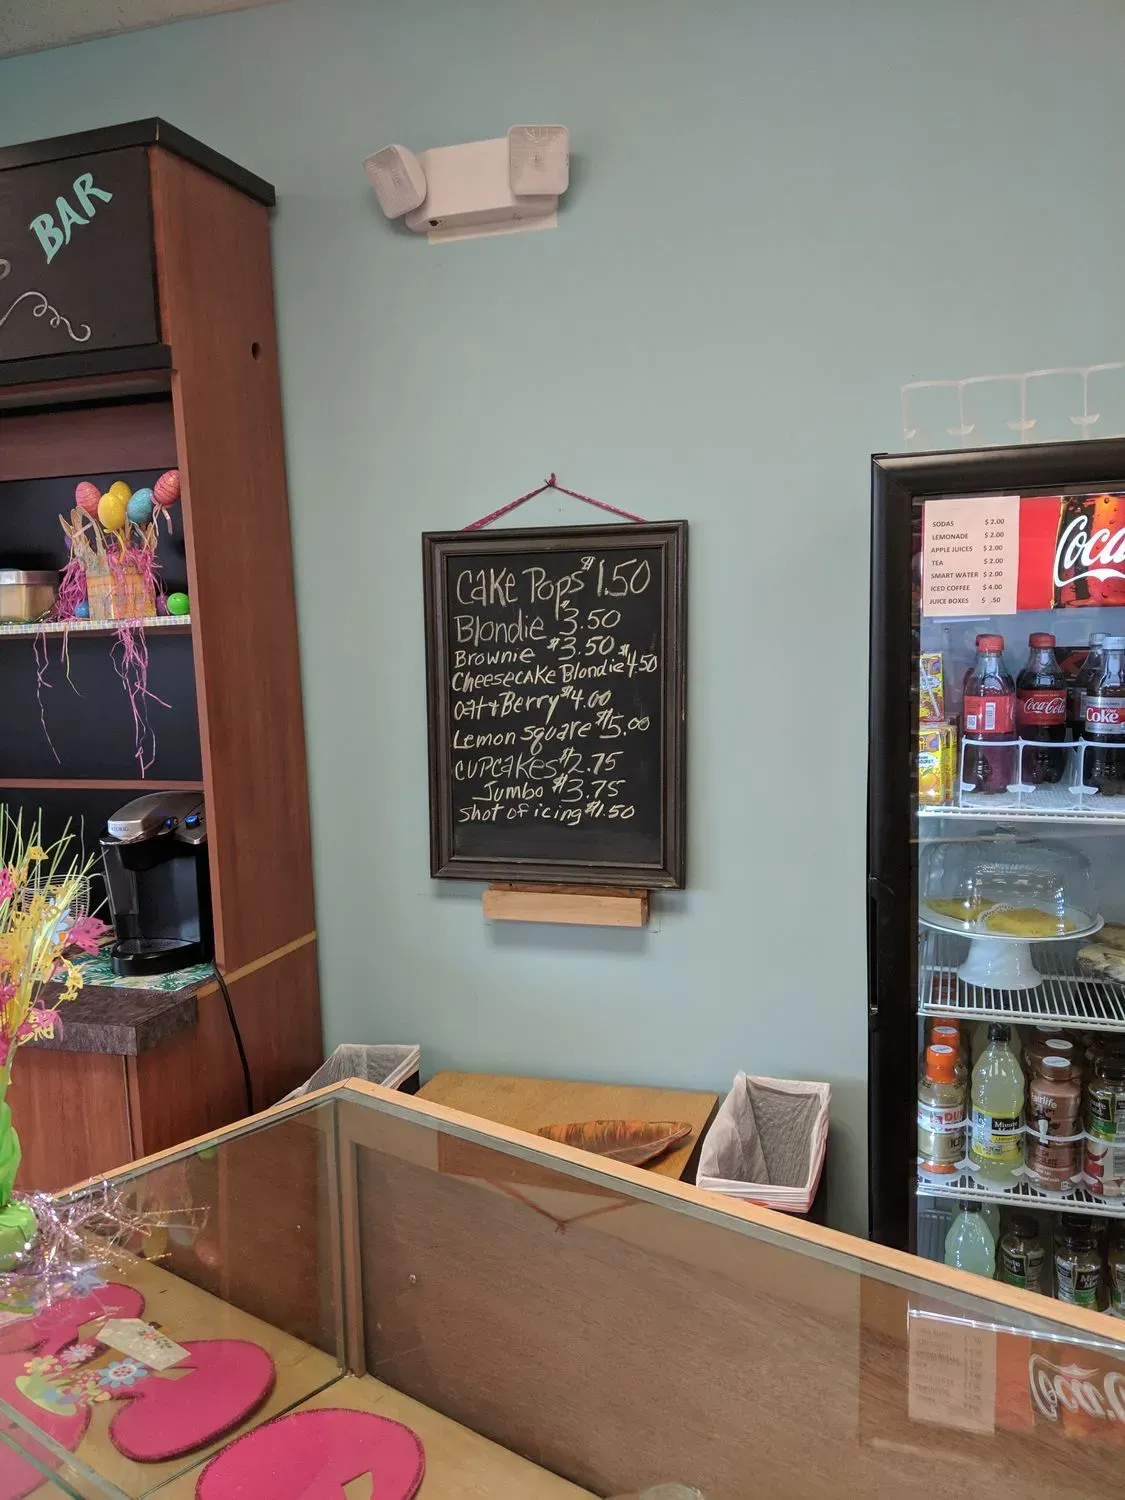 BAR
CAKE POPS $1.50
Blondie $3.50
Brownie $3.50
Cheesecake Blondie $4.50
Oat & Berry $4.00
Lemon square $5.00
CUPCAKES $2.75
Jumbo $3.75
shot of icing $1.50
KEURIG
SODAS $ 2.00
LEMONADE $ 2.00
APPLE JUICES $ 2.00
TEA $ 2.00
SMART WATER $ 2.00
ICED COFFEE $ 4.00
JUICE BOXES $ .50
Coca
Coca-Cola
Coke
DU
Minute
fairlife
Minute